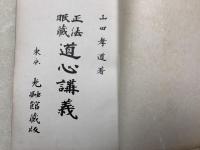 山田孝道著
正法
眼蔵
道心講義
東京 光融館蔵版